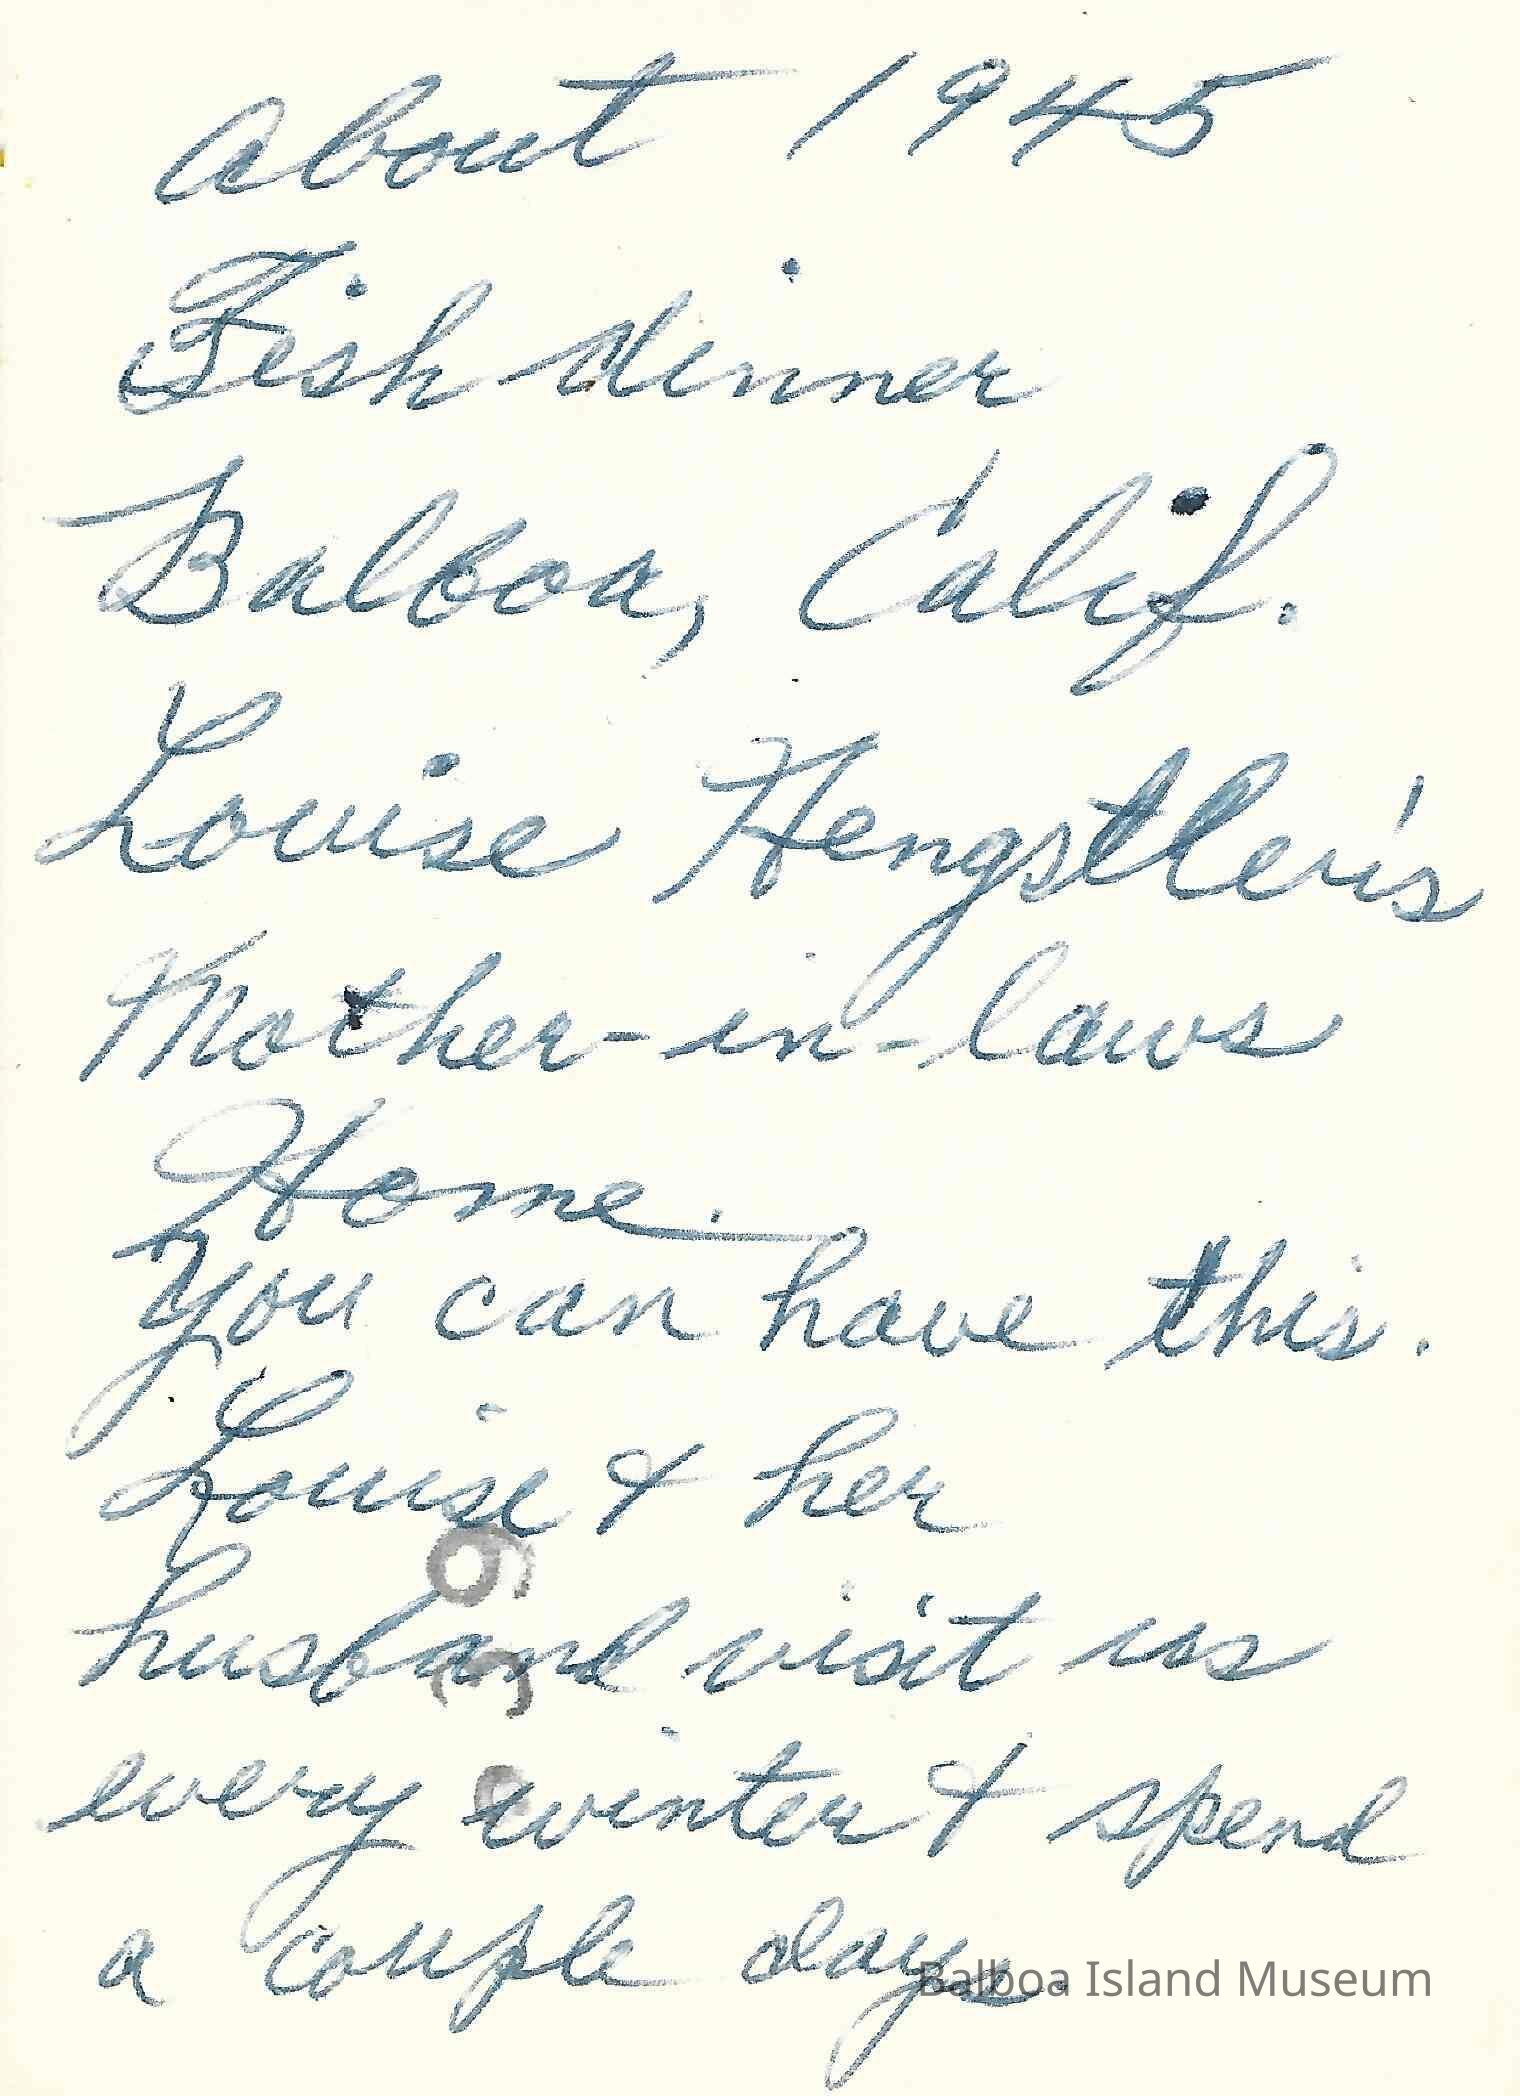 about 1945
Fish dinner
Balboa, Calif.
Louise Hengstler's
Mother-in-laws
Home.
You can have this.
Louise & her
husband visit us
every winter & spend
a couple days.
Balboa Island Museum